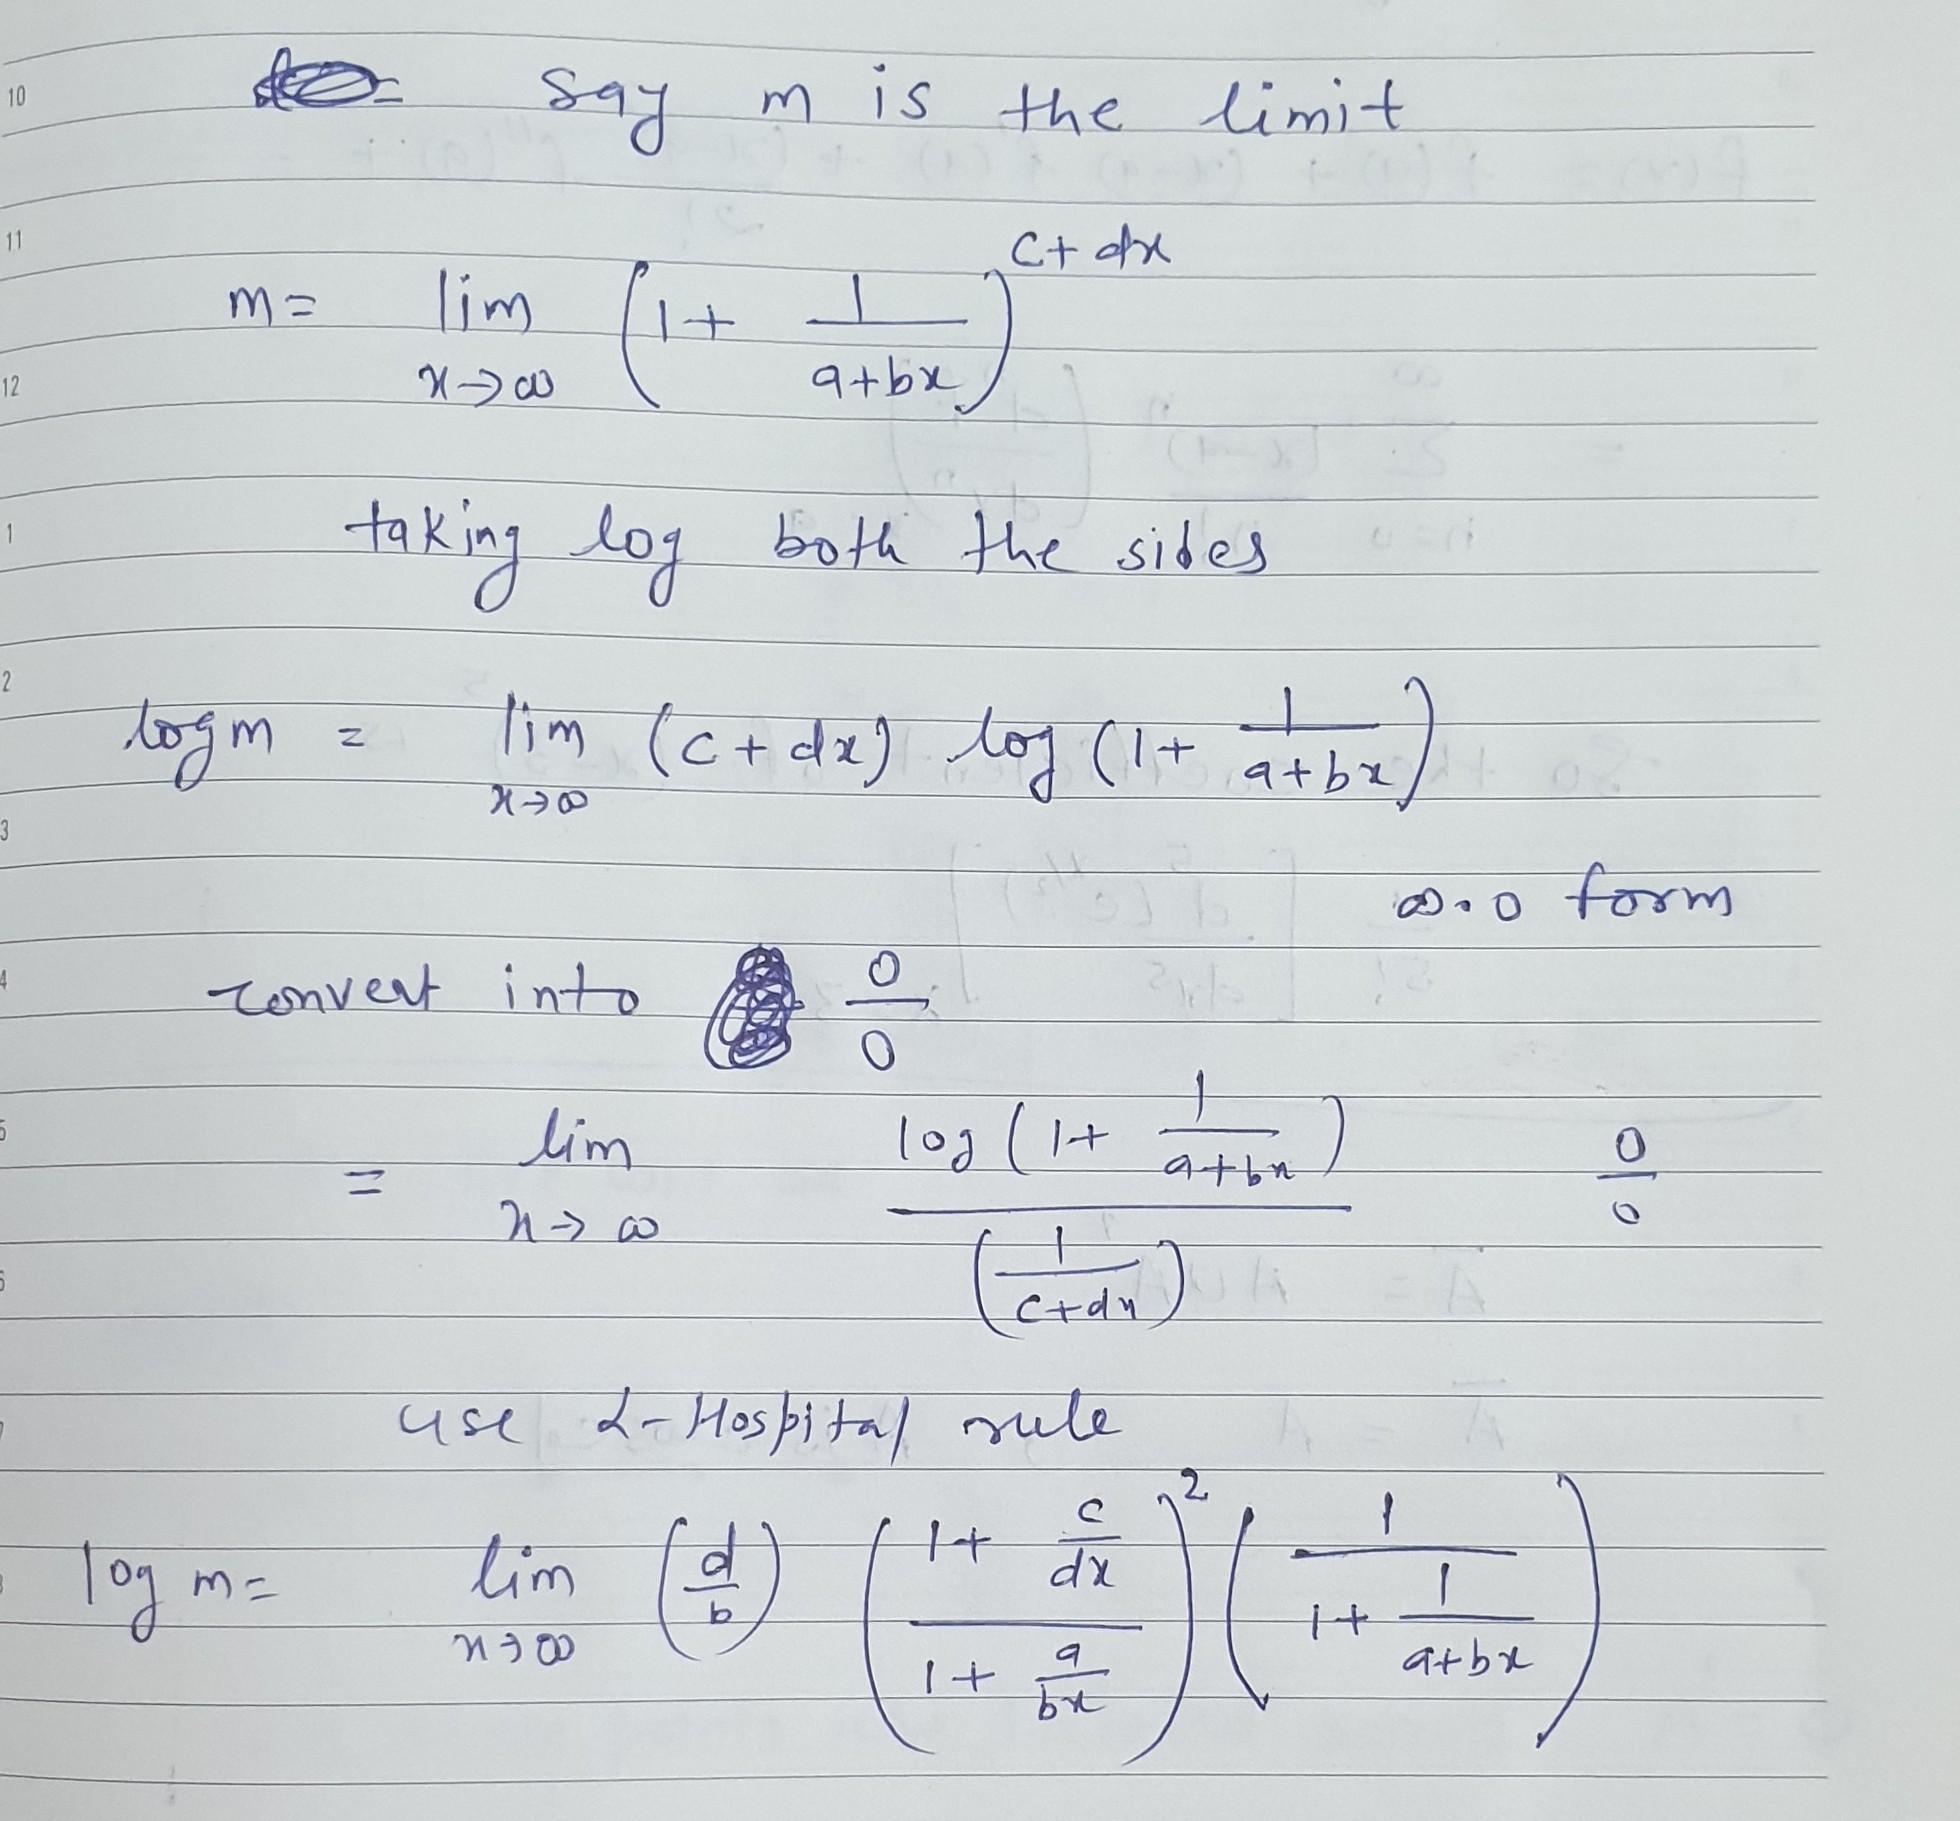 say m is the limit
m = lim x→∞ (1 + 1/(a+bx))^(c+dx)
taking log both the sides
log m = lim x→∞ (c+dx) log (1 + 1/(a+bx))
∞.0 form
convert into 0/0
= lim x→∞ log (1 + 1/(a+bx)) / (1/(c+dx)) 0/0
use L-Hospital rule
log m = lim x→∞ (d/b) ((1 + c/dx)/(1 + a/bx))^2 (1/(1 + 1/(a+bx)))
10
11
12
1
2
3
4
5
6